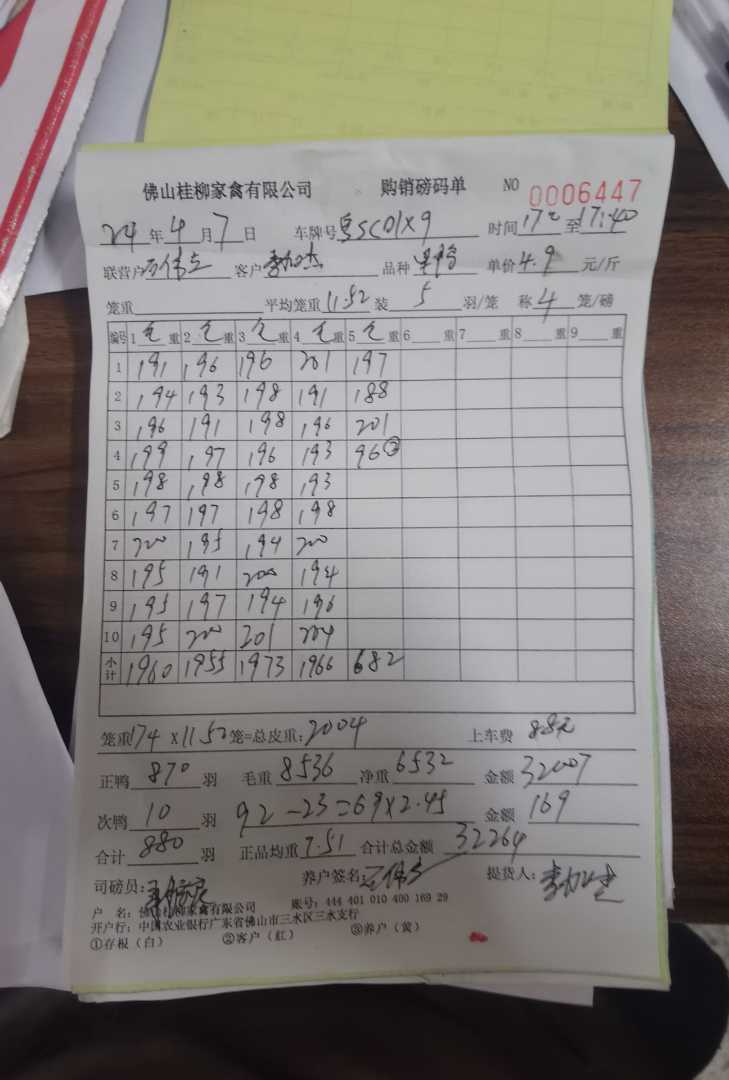 佛山桂柳家禽有限公司 购销磅码单 NO 0006447
24 年 4 月 7 日 车牌号 粤SC01X9 时间 17 至 17:40
联营户 客户 品种 单价 4.9 元/斤
笼重 平均笼重 11.52 装 5 羽/笼 称 4 笼/磅
编号 1 毛 重 2 毛 重 3 毛 重 4 毛 重 5 毛 重 6 重 7 重 8 重 9 重
1 191 196 196 201 197
2 194 193 198 191 188
3 196 191 198 196 201
4 199 197 196 193 96②
5 198 198 198 193
6 197 197 198 198
7 200 195 194 200
8 195 191 200 194
9 195 197 194 196
10 195 200 201 204
小计 1960 1955 1973 1966 682
笼重 174 x 11.52 笼=总皮重: 2004 上车费 88元
正鸭 870 羽 毛重 8536 净重 6532 金额 32007
次鸭 10 羽 92-23=69x2.45 金额 169
合计 880 羽 正品均重 7.51 合计总金额 32264
司磅员: 养户签名: 提货人:
户 名: 佛山桂柳家禽有限公司 账号: 444 401 010 400 169 29
开户行: 中国农业银行广东省佛山市三水区三水支行
①存根(白) ②客户(红) ③养户(黄)